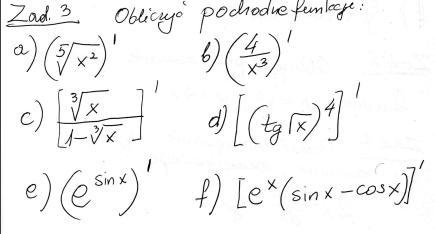 Zad. 3 Obliczyć pochodne funkcje:
a) (⁵√x²)' b) (4/x³)'
c) [³√x / (1-³√x)]' d) [(tg√x)⁴]'
e) (e^sinx)' f) [eˣ(sinx-cosx)]'